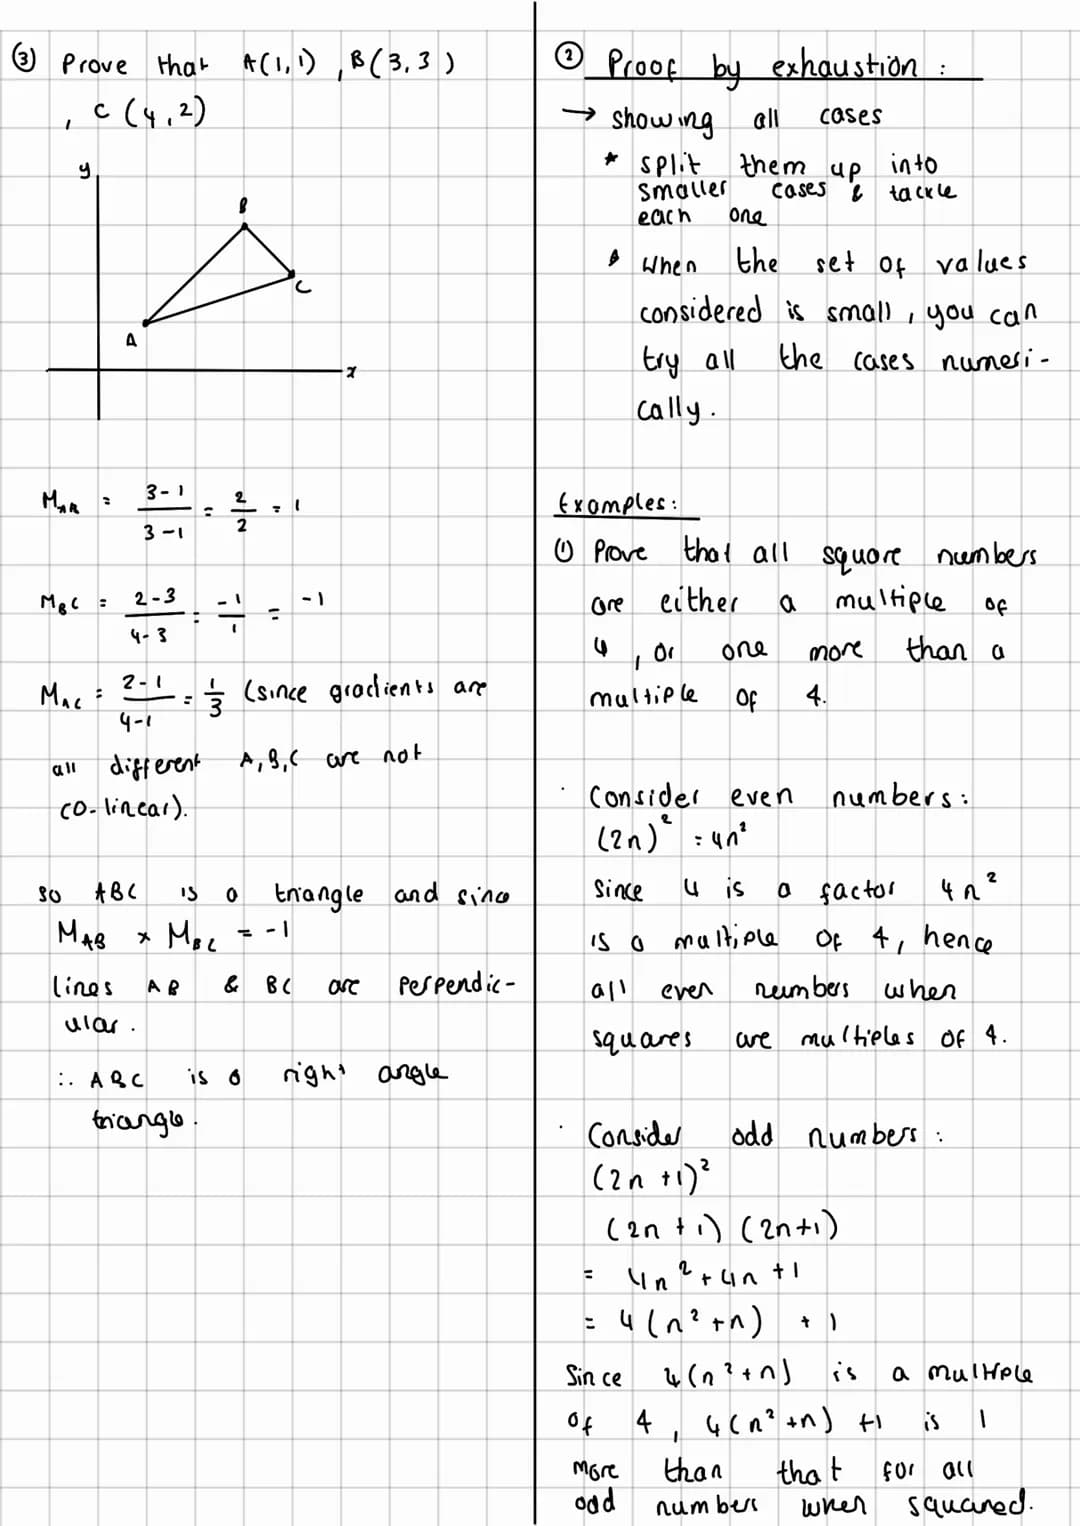 ③ Prove that A(1,1) , B(3,3)
, C (4,2)
y
B
C
A
x
M_AB = 3-1/3-1 = 2/2 = 1
M_BC = 2-3/4-3 = -1/1 = -1
M_AC = 2-1/4-1 = 1/3 (since gradients are
all different A,B,C are not
co-linear).
so ABC is a triangle and since
M_AB × M_BC = -1
lines AB & BC are perpendic-
ular.
∴ ABC is a right angle
triangle.
② Proof by exhaustion :
→ showing all cases
* split them up into
smaller cases & tackle
each one
* When the set of values
considered is small, you can
try all the cases numeri-
cally.
Examples:
① Prove that all square numbers
are either a multiple of
4, or one more than a
multiple of 4.
· Consider even numbers:
(2n)² = 4n²
Since 4 is a factor 4n²
is a multiple of 4, hence
all even numbers when
squares are multiples of 4.
· Consider odd numbers :
(2n +1)²
(2n +1) (2n+1)
= 4n² + 4n +1
= 4(n² +n) + 1
Since 4(n²+n) is a multiple
of 4, 4(n²+n) +1 is 1
more than that for all
odd numbers when squared.